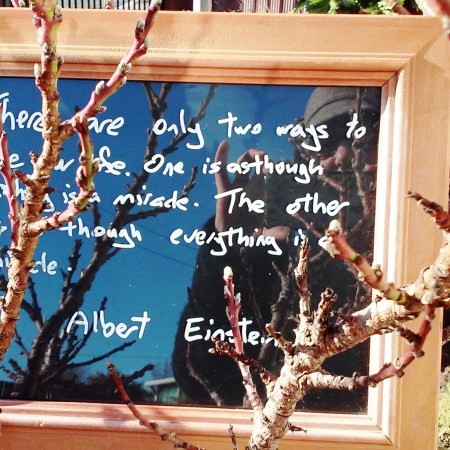 There are only two ways to
life. One is as though
is a miracle. The other
though everything is a
miracle.
Albert Einstein